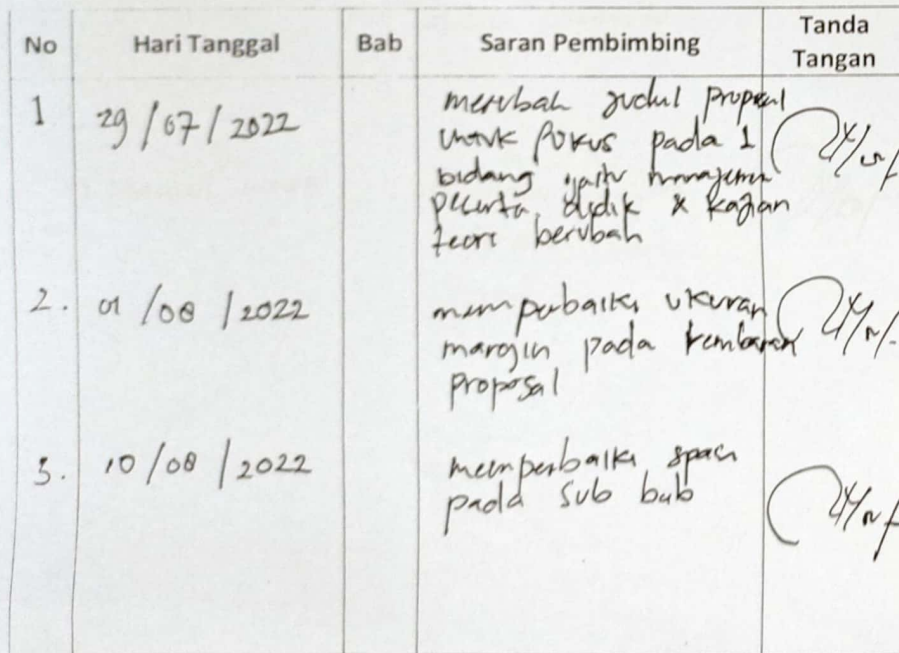 No Hari Tanggal Bab Saran Pembimbing Tanda Tangan
1 29/07/2022 merubah judul proposal
untuk fokus pada 1
bidang yaitu manajemen
peserta didik & kajian
teori berubah
2. 01/08/2022 memperbaiki ukuran
margin pada lembaran
proposal
3. 10/08/2022 memperbaiki spasi
pada sub bab